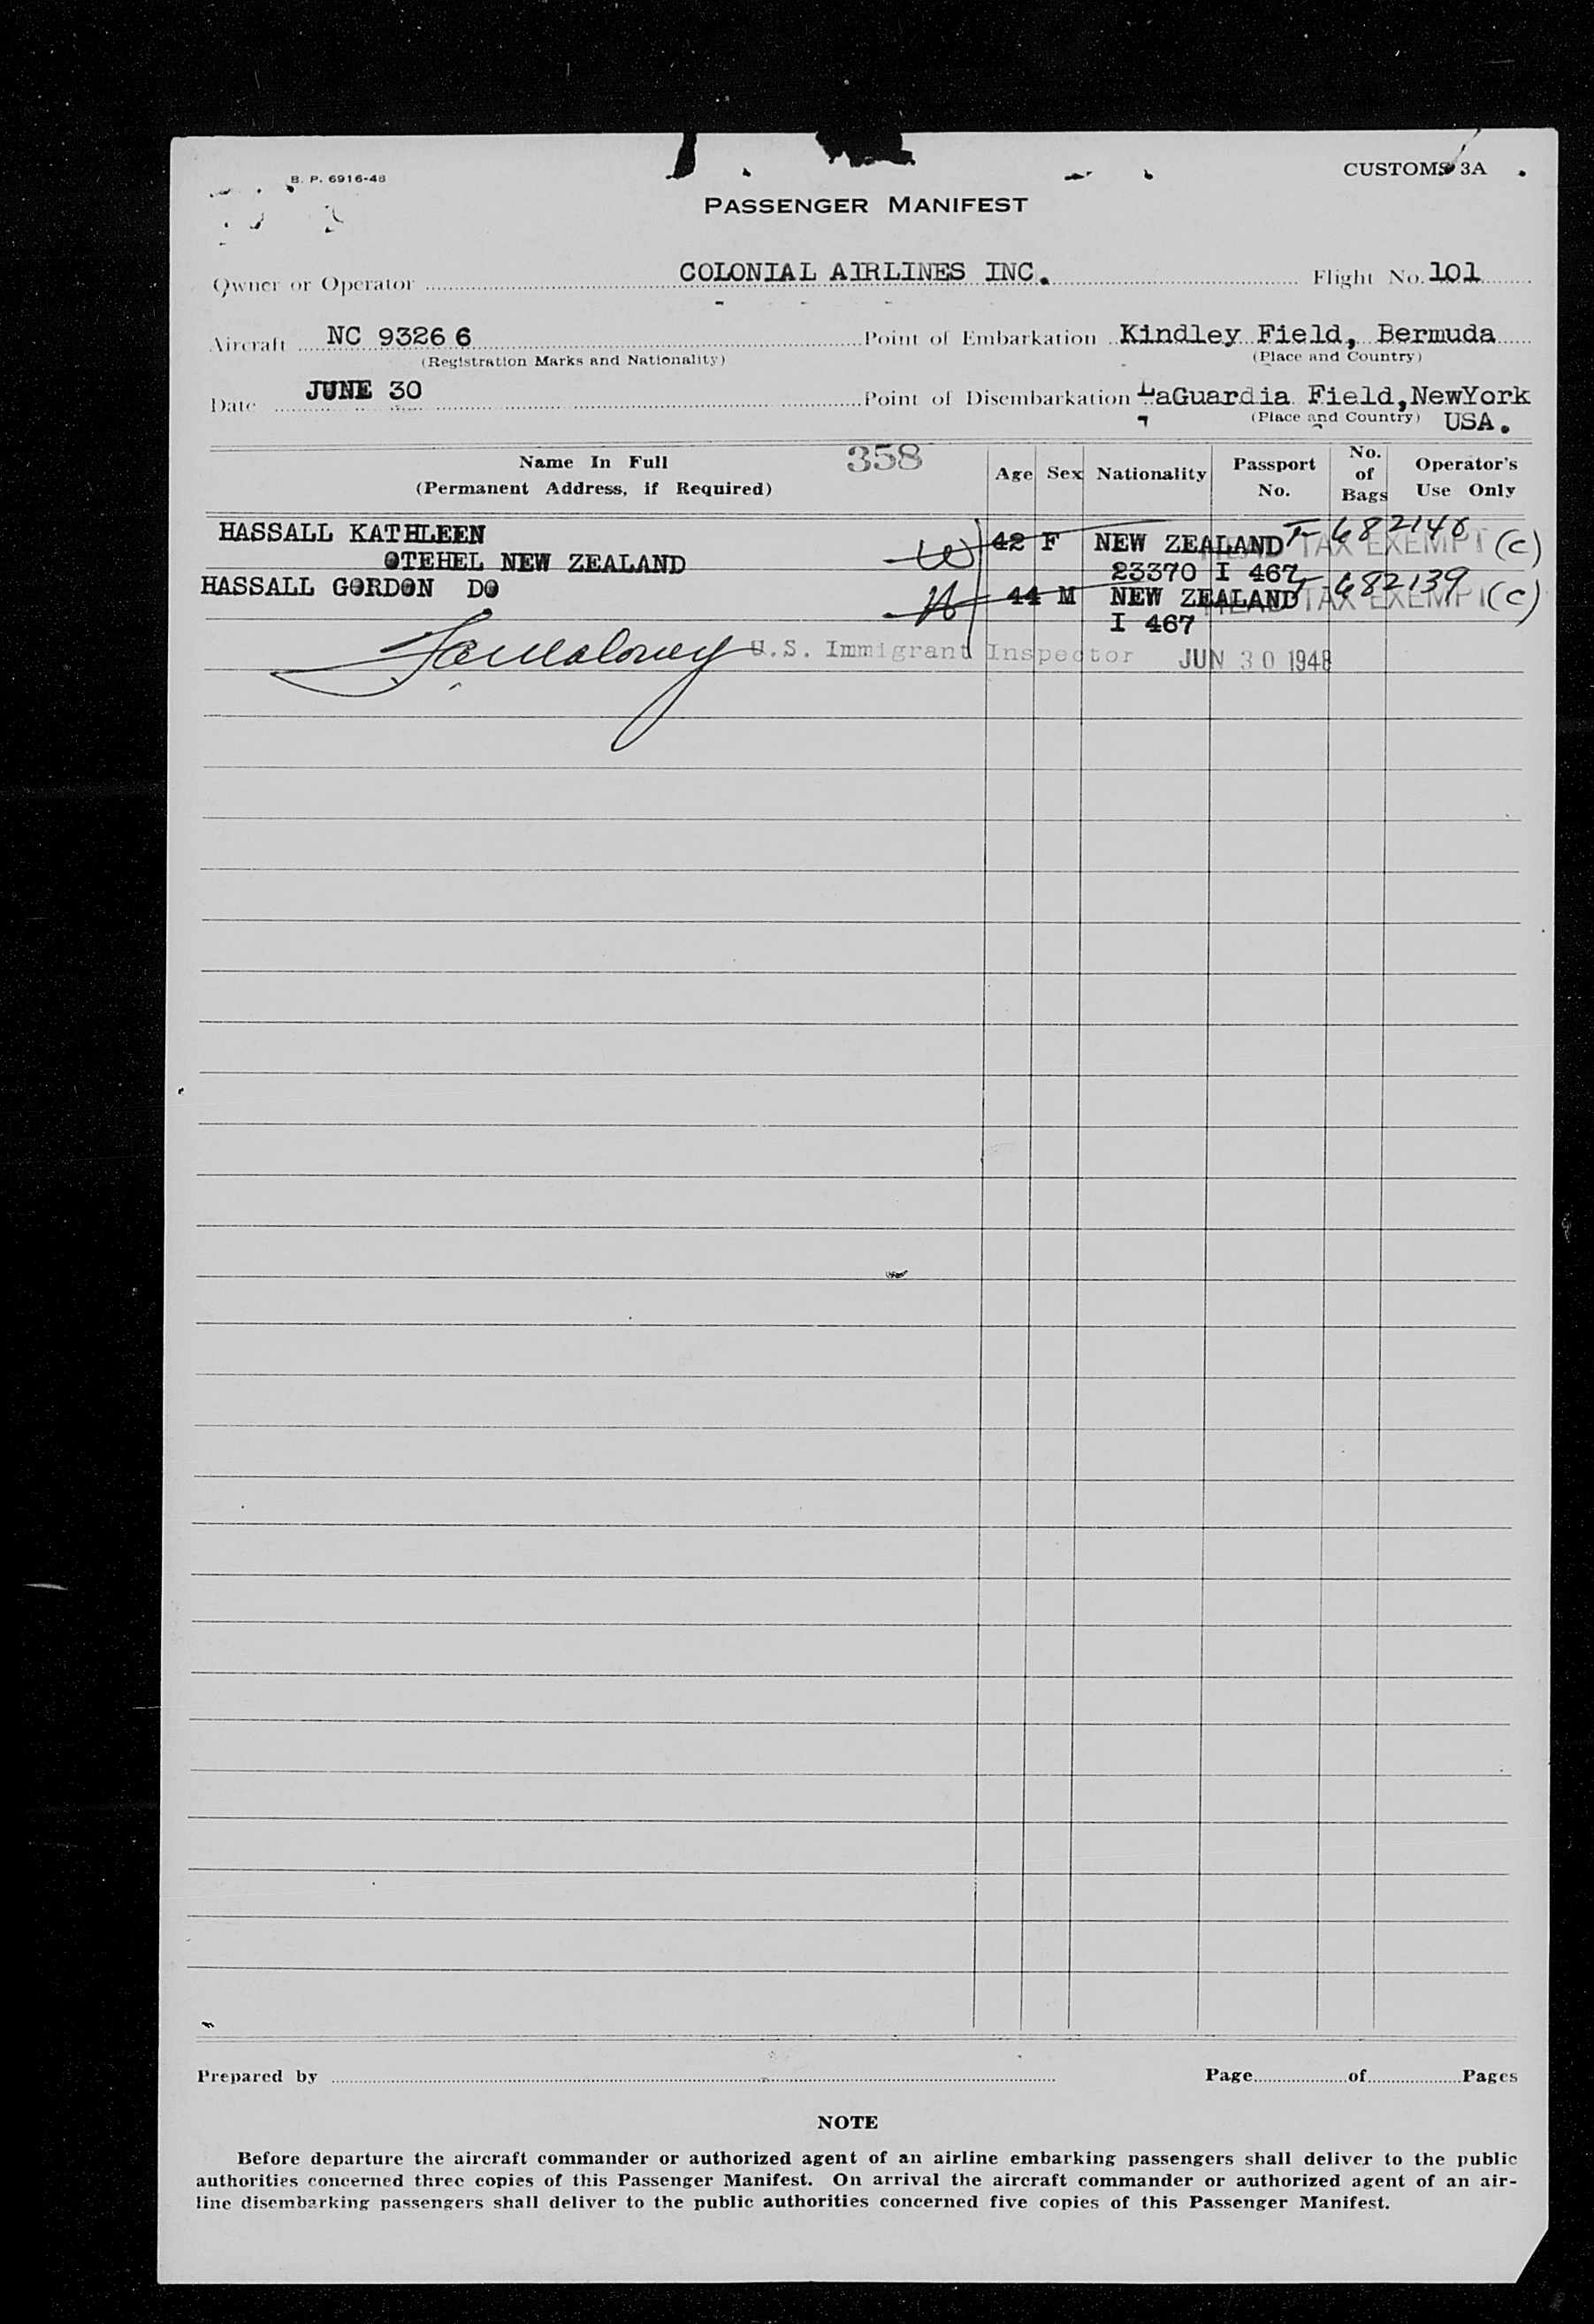 B. P. 6916-48
CUSTOMS 3A
PASSENGER MANIFEST
Owner or Operator COLONIAL AIRLINES INC. Flight No. 101
Aircraft NC 93266 Point of Embarkation Kindley Field, Bermuda
(Registration Marks and Nationality) (Place and Country)
Date JUNE 30 Point of Disembarkation LaGuardia Field,NewYork
(Place and Country) USA.
358
Name In Full Age Sex Nationality Passport No. No. of Bags Operator's Use Only
(Permanent Address, if Required)
HASSALL KATHLEEN W 42 F NEW ZEALAND HEAD TAX EXEMPT (C)
OTEHEL NEW ZEALAND 23370 I 467
HASSALL GORDON DO H 44 M NEW ZEALAND 682139 HEAD TAX EXEMPT (C)
I 467
U.S. Immigrant Inspector JUN 30 1948
Prepared by Page of Pages
NOTE
Before departure the aircraft commander or authorized agent of an airline embarking passengers shall deliver to the public
authorities concerned three copies of this Passenger Manifest. On arrival the aircraft commander or authorized agent of an air-
line disembarking passengers shall deliver to the public authorities concerned five copies of this Passenger Manifest.